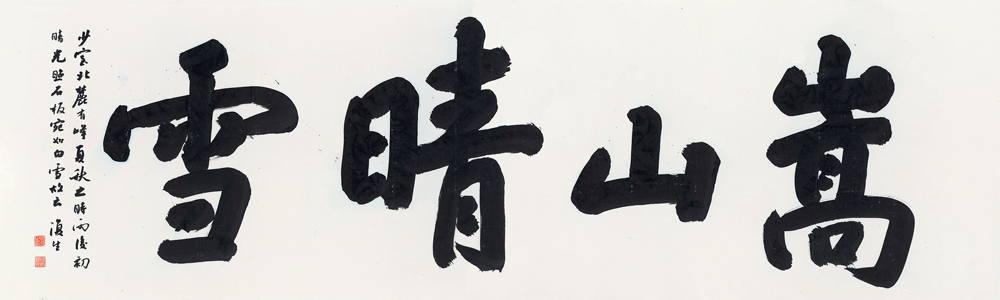 嵩山晴雪
少室北麓有峰夏秋之時雨後初
晴光照石板宛如白雪故云 復生